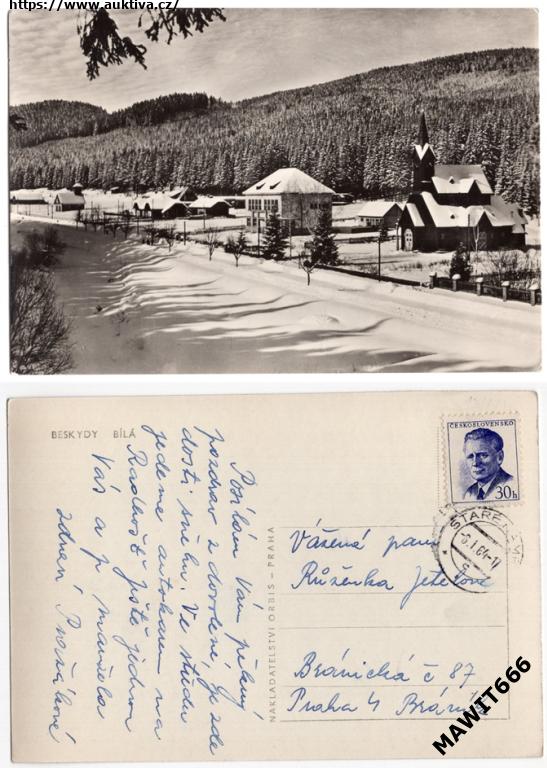 https://www.auktiva.cz/
BESKYDY BÍLÁ
ČESKOSLOVENSKO
30h
Posílám Vám pěkný
pozdrav z dovolené, je zde
dosti sněhu. Ve středu
jedeme autokarem na
Radhošť. Ještě jednou
Vás a p. manžela
zdraví
NAKLADATELSTVÍ ORBIS – PRAHA
Vážená paní
Růženka Jetelová
Bránická č 87
Praha 4 Bráník
MAWIT666